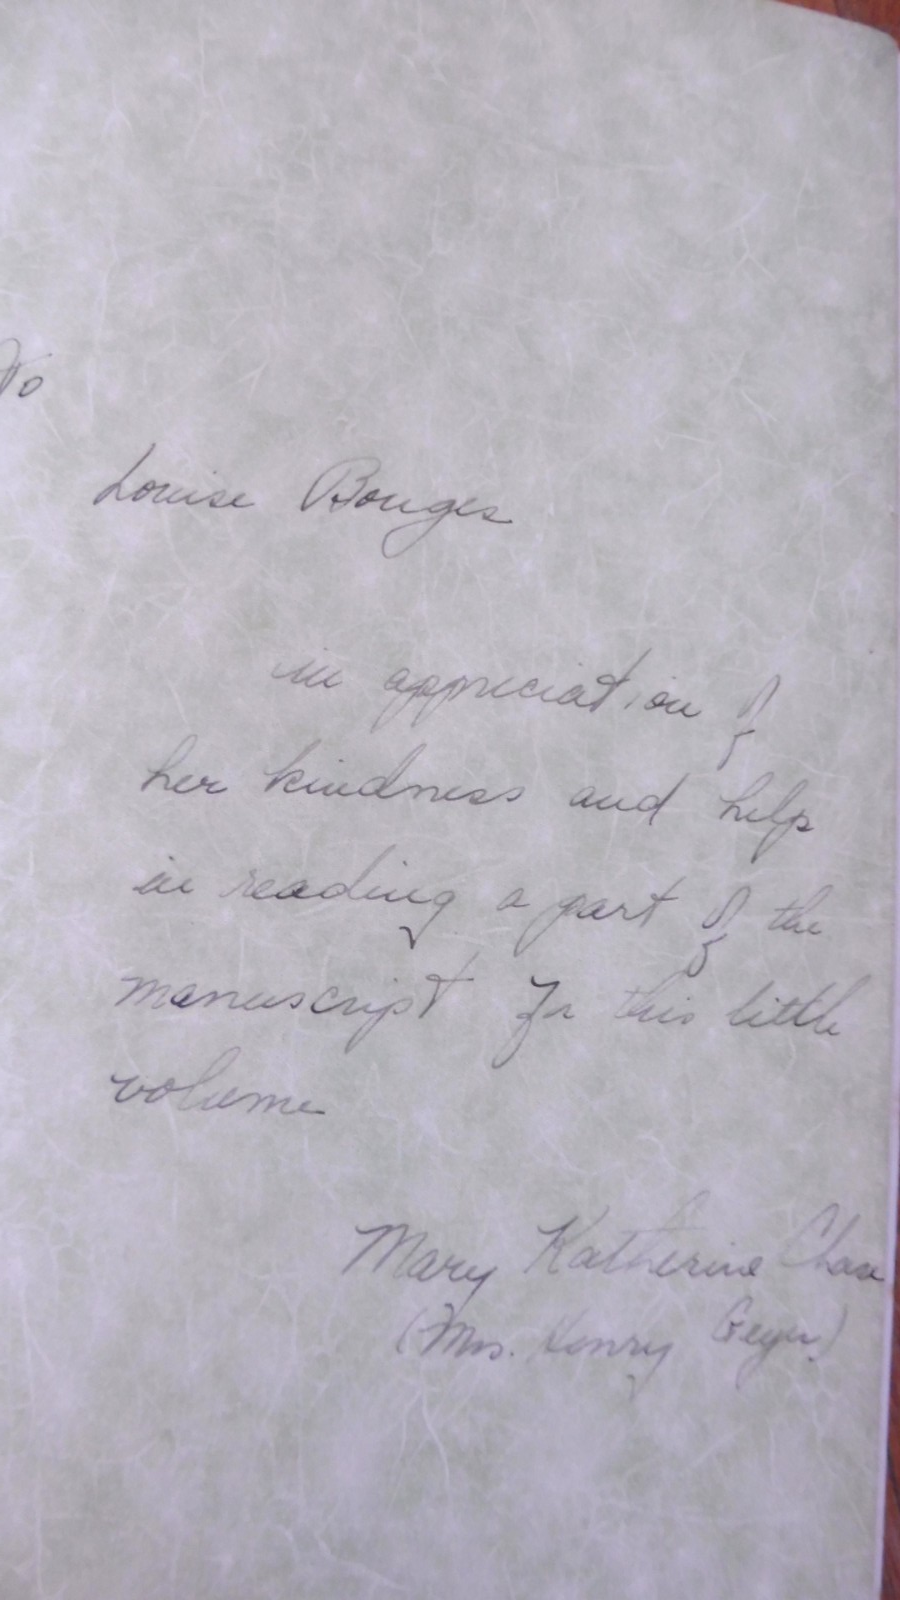 To
Louise Bouges
in appreciation of
her kindness and help
in reading a part of the
manuscript for this little
volume
Mary Katherine Chase
(Mrs. Henry Geyer)